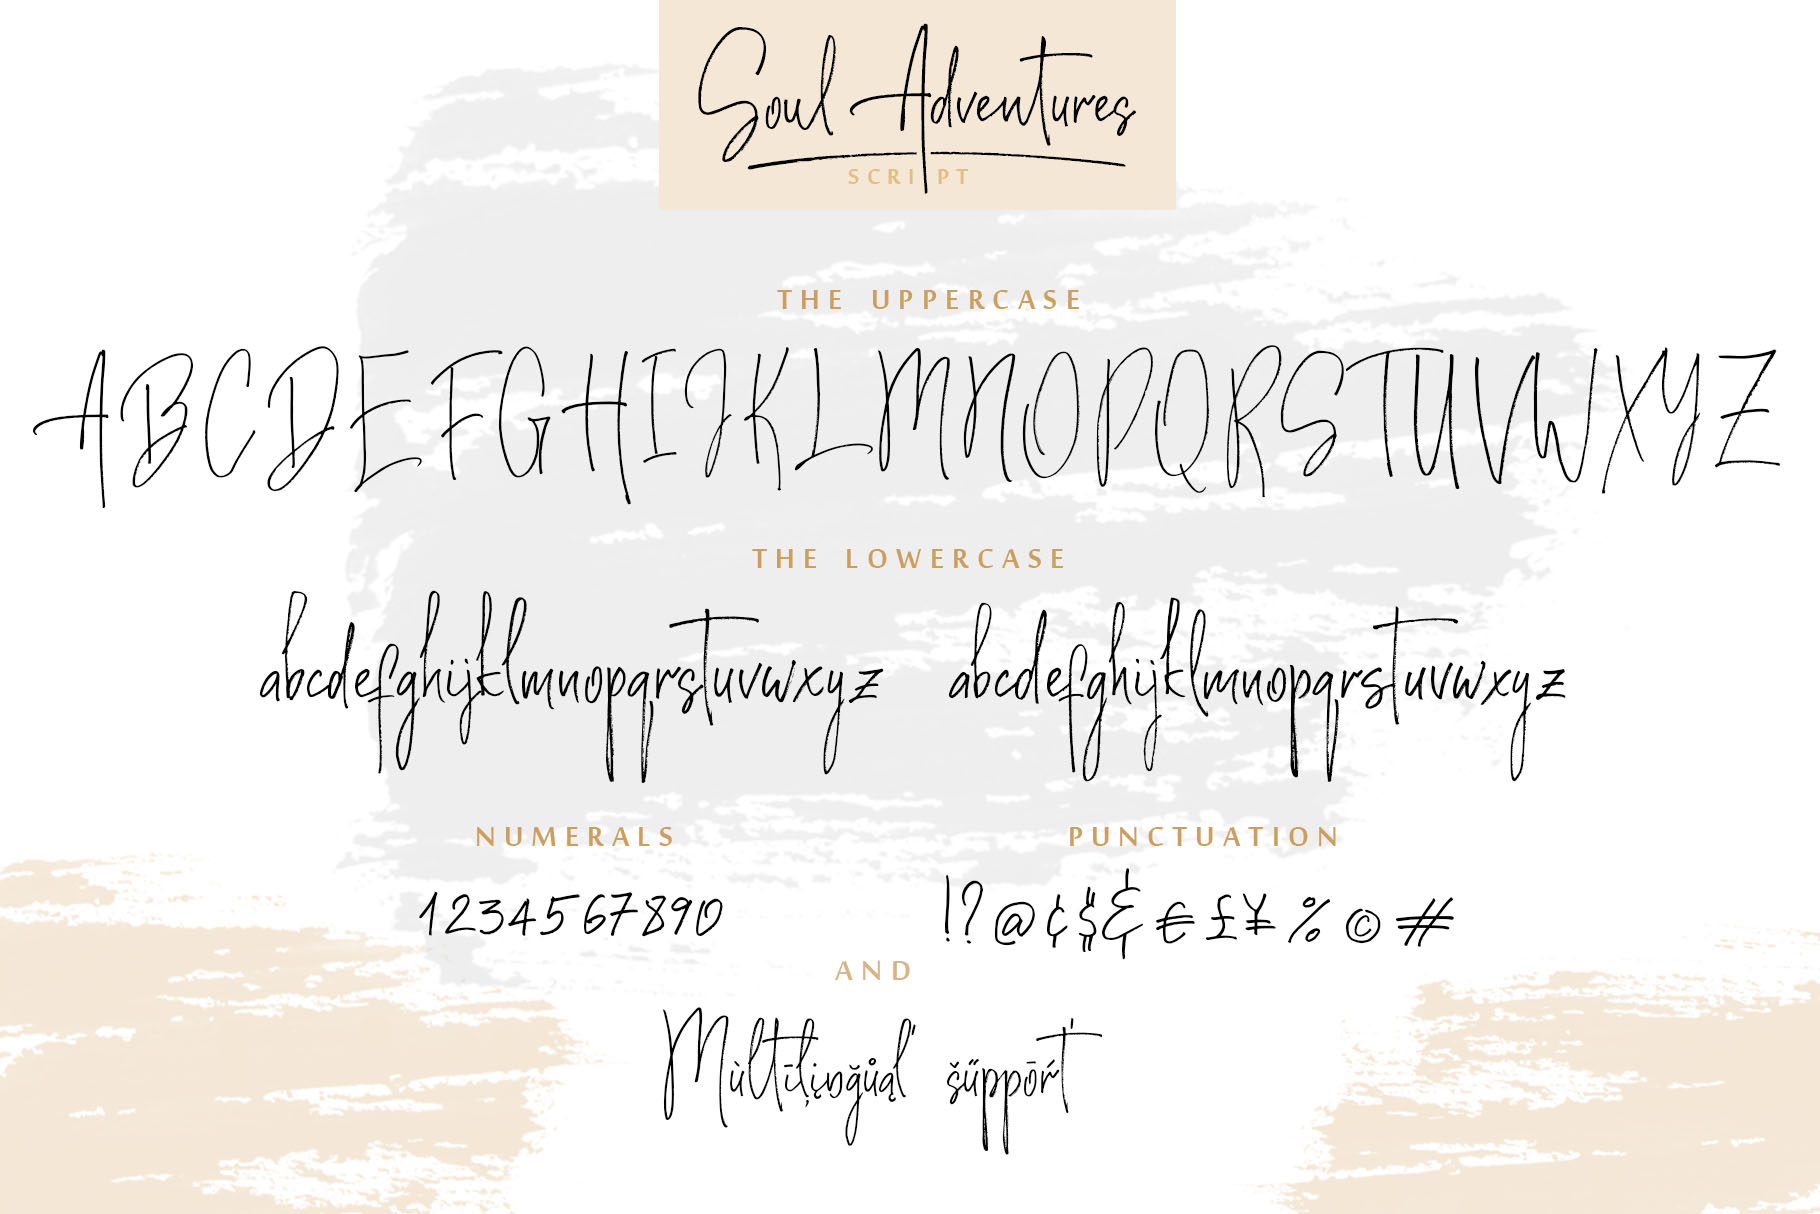 Soul Adventures
SCRIPT
THE UPPERCASE
ABCDEFGHIJKLMNOPQRSTUVWXYZ
THE LOWERCASE
abcdefghijklmnopqrstuvwxyz abcdefghijklmnopqrstuvwxyz
NUMERALS
1234567890
PUNCTUATION
!?@¢$&€£¥%©#
AND
Mùltīļįŋğůąľ šűppōŕť